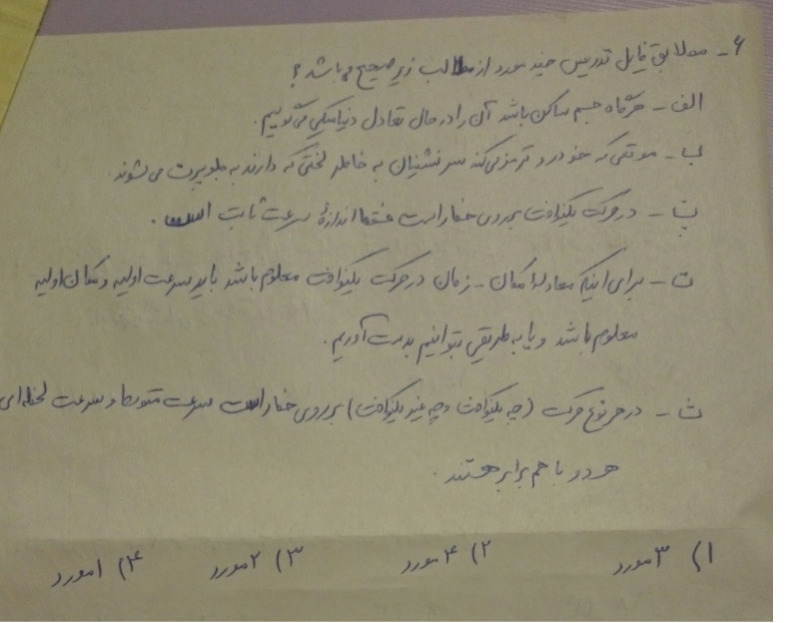 ۶- مطابق فایل تدریس چند مورد از مطالب زیر صحیح می باشد؟
الف - هرگاه جسم ساکن باشد آن را در حال تعادل دینامیکی می گوییم.
ب - موقعی که خودرو ترمز می کند سرنشینان به خاطر لختی که دارند به جلو پرت می شوند.
پ - در حرکت یکنواخت بر روی خط راست فقط اندازهٔ سرعت ثابت است.
ت - برای اینکه معادلهٔ مکان - زمان در حرکت یکنواخت معلوم باشد باید سرعت اولیه و مکان اولیه
معلوم باشد و یا به طریقی بتوانیم بدست آوریم.
ث - در هر نوع حرکت (چه یکنواخت و چه غیر یکنواخت) بر روی خط راست سرعت متوسط و سرعت لحظه ای
هر دو با هم برابر هستند.
۱) ۳ مورد ۲) ۴ مورد ۳) ۲ مورد ۴) ۱ مورد